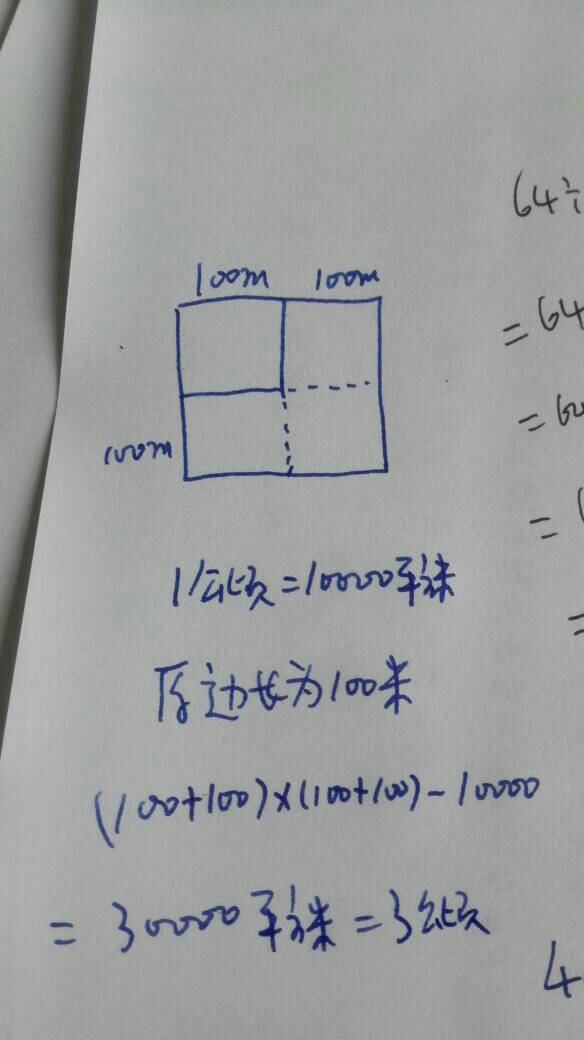 100m 100m
100m
1公顷=10000平方米
原边长为100米
(100+100)×(100+100)-10000
=30000平方米=3公顷
64÷
=64
=60
=
=
4